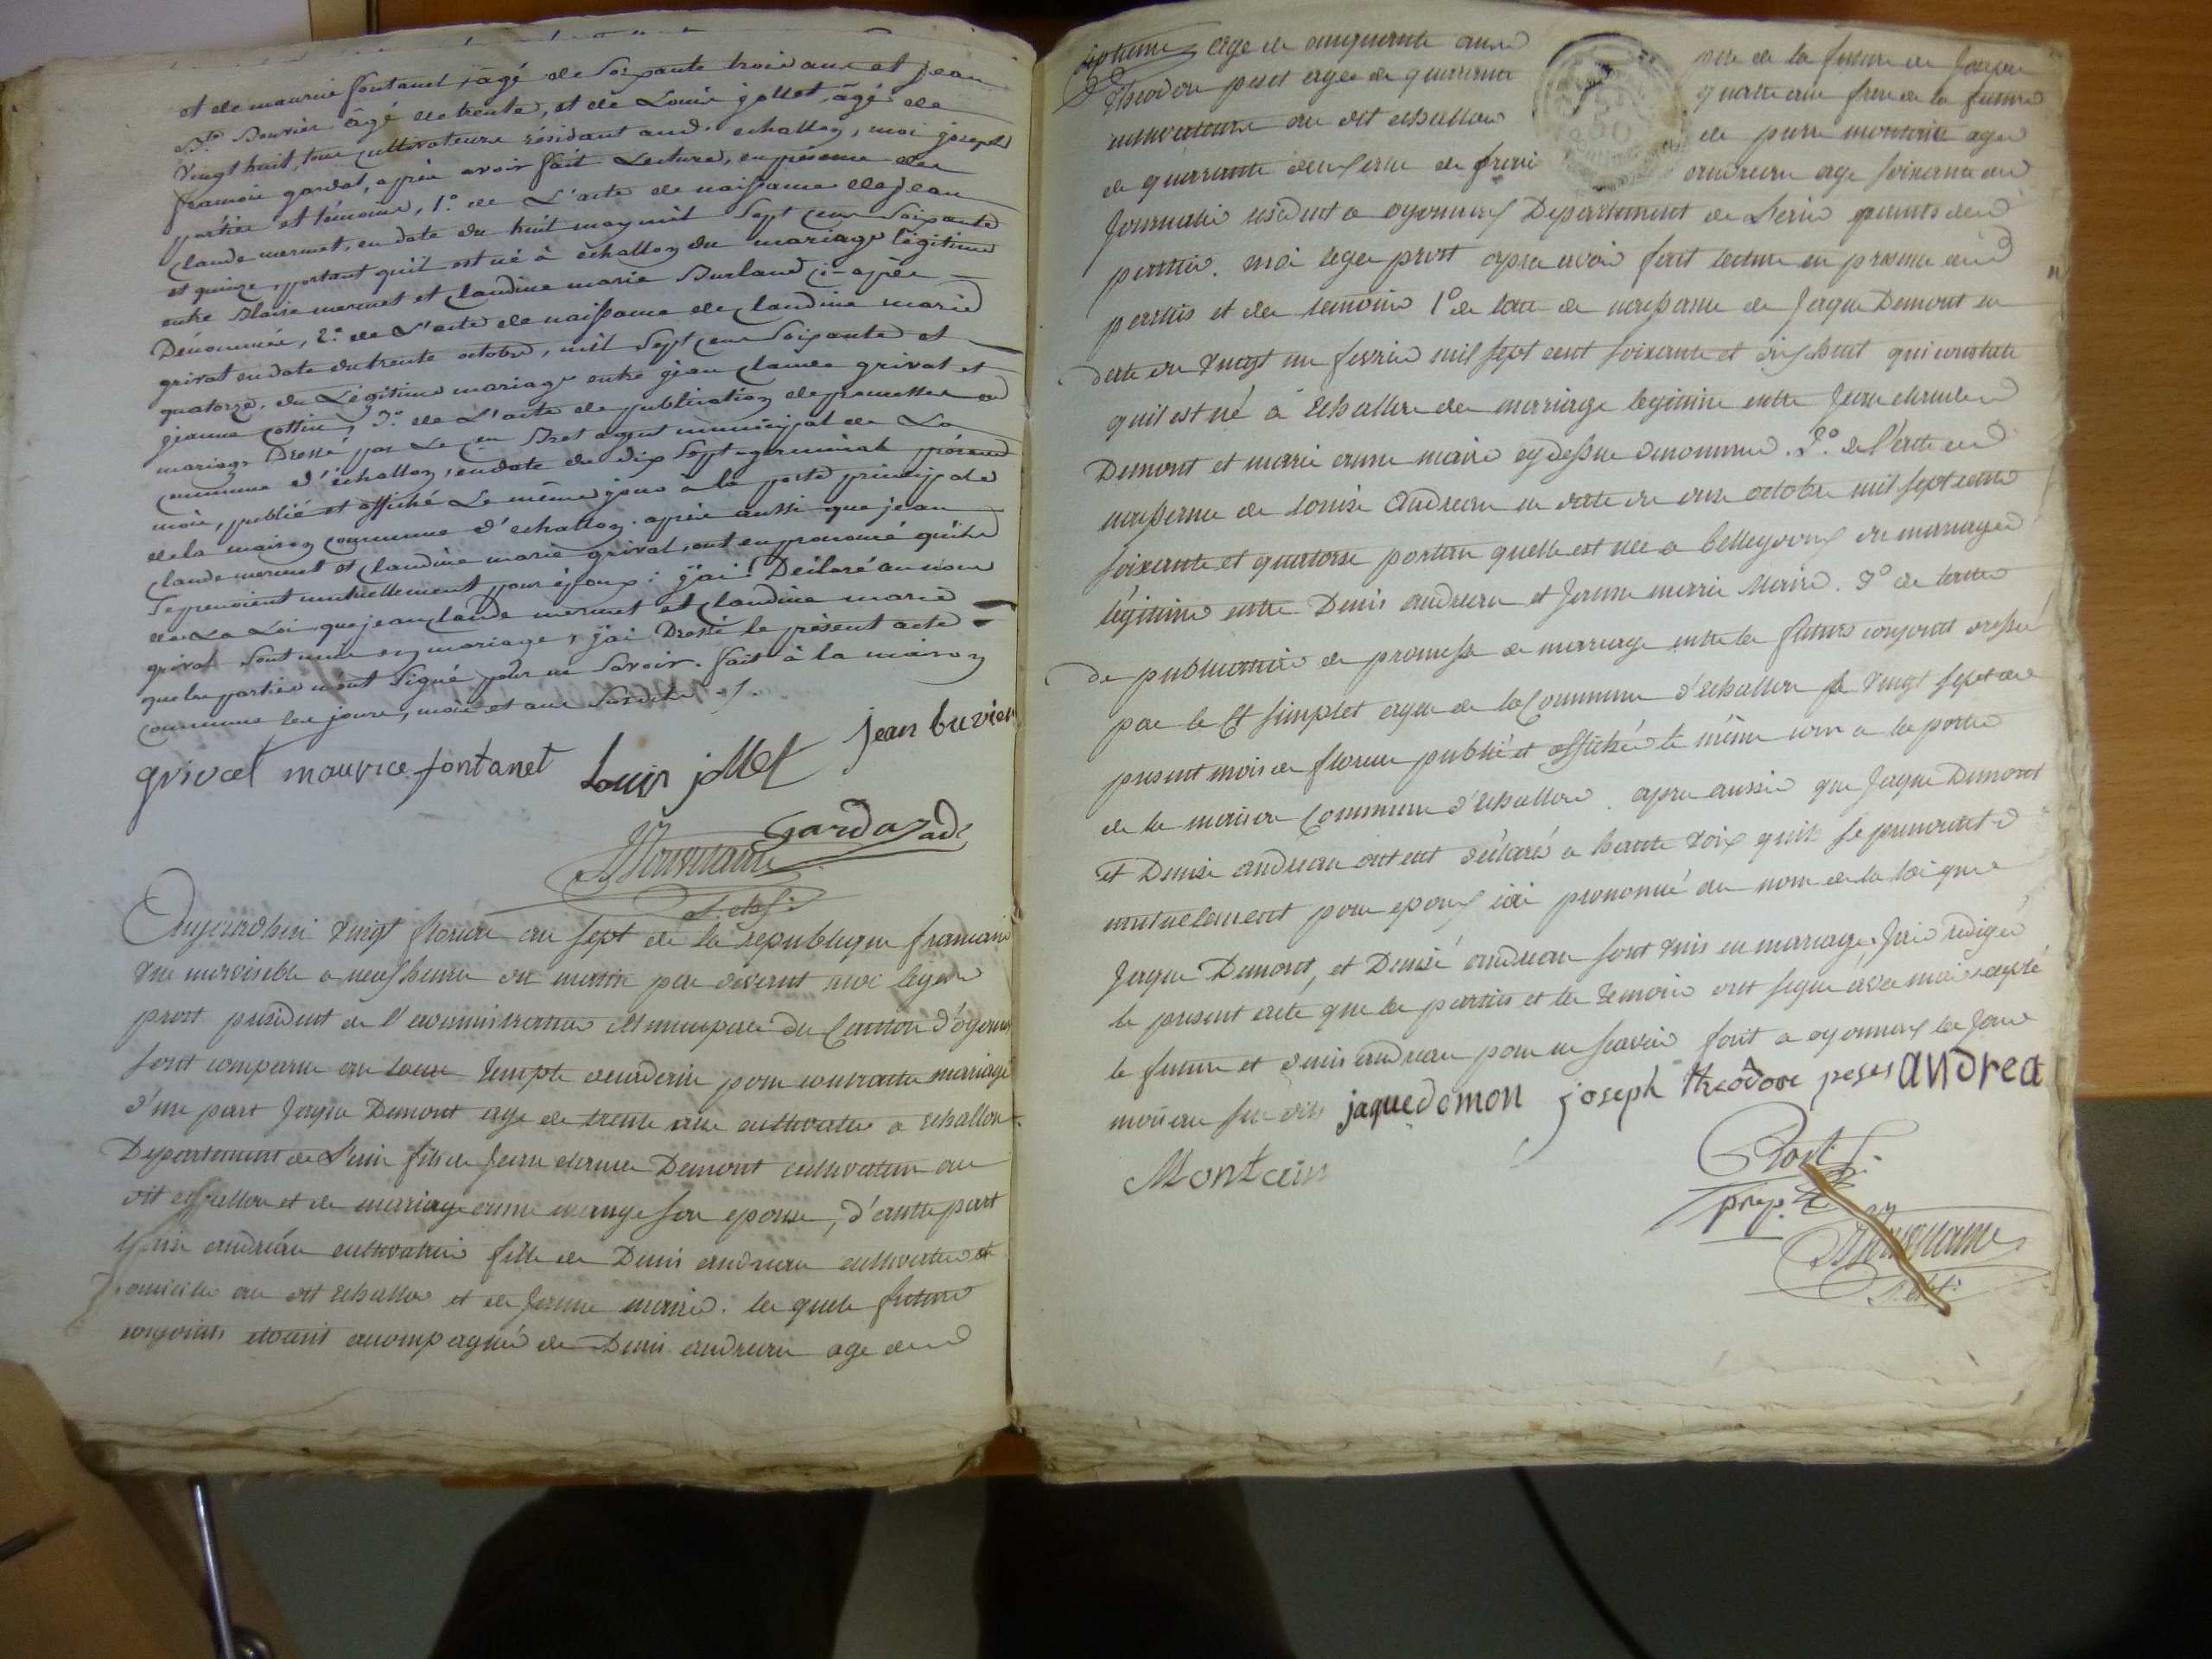 et de maurice fontanet, âgé de soixante trois ans et jean
Bte Bouvier âgé de trente, et de Louis jollet, âgé de
vingt huit, tous cultivateurs résidant aud. echallon, moi joseph
françois gardat, après avoir fait Lecture, en présence des
parties et témoins, 1.° de L'acte de naissance de jean
claude mermet, en date du huit may mil sept cent soixante
et quinze, portant qu'il est né à échallon du mariage légitime
entre Blaise mermet et claudine marie Burland ci-après
Dénommée, 2.° de L'acte de naissance de claudine marie
grivat en date du trente octobre, mil sept cent soixante et
quatorze, du Légitime mariage entre jean claude grivat et
jeanne cottin, 3.° de L'acte de publication de promesses de
mariage Dressé par Le cen Bret agent municipal de La
commune d'échallon, en date du dix sept germinal présent
mois, publié et affiché Le même jour à la porte principale
de la maison commune d'echallon. après aussi que jean
claude mermet et claudine marie grivat, ont eu prononcé qu'ils
se prenoient mutuellement pour époux: j'ai Déclaré au nom
de La Loi que jean claude mermet et claudine marie
grivat sont unis en mariage, j'ai Dressé le présent acte
que les parties n'ont signé pour ne savoir. fait à la maison
commune les jours, mois et ans susdits
grivat maurice fontanet Louis jollet jean buvier
Gardat adj
Aujourdhui vingt floreal an sept de la republique francaise
une indivisible a neuf heures du matin par devant moi leger
prost president de l'administration Municipale du Canton d'oyonnax
sont comparu au local Temple decadaire pour contracter mariage
d'une part Jaque Demont age de trente ans cultivateur a Echallon
Departement de Lain fils de Jean claude Demont cultivateur au
dit echallon et de mariage anne son epouse, d'autre part
andréan cultivatrice fille de Denis andrean cultivateur et
domicilié au dit Echallon et de Jeanne marie. les quels futurs
conjoints etants acompagné de Denis andrean age de
septieme age de cinquante ans père de la future de Joseph
Theodore peset agee de quarante quatre ans frere de la future
cultivateurs au dit echallon de pierre montain agee
de quarante deux ans de andrean age soixante ans
Journalier resident a oyonnax Departement de Lain parents des
parties. moi leger prost apres avoir fait lecture en presence des
parties et des temoins 1° de lacte de naissance de Jaque Demont en
date du vingt un fevrier mil sept cent soixante et dix huit qui constate
quil est né a Echallon du mariage legitime entre Jean claude
Demont et marie anne maire cy dessus denommé. 2° de l'acte de
naissance de Louise andrean en date du onze octobre mil sept cents
soixante et quatorse portan quelle est née a belleydoux du mariage
légitime entre Denis andrean et Jeanne marie Maire. 3° de lacte
de publication de promesse de mariage entre les futurs conjoint dressé
par le Ct simplet agen de la Commune d'Echallon le vingt sept du
present mois de floreal publié et affiché le même jour a la porte
de la maison Commune d'Echallon. apres aussi que Jaque Demont
et Denise andrean ont eut déclaré a haute voix quils se prenoient
mutuelement pour epoux jai prononcé au nom de la loi que
Jaque Demont, et Denise andrean sont unis en mariage, Jai redigée
le present acte que les parties et les Temoins ont signé avec moi excepté
la future et denis andrean pour ne scavoir fait a oyonnax les Jour
mois an su dits jaque domon joseph theôdore peset andrea
Montain
Prost